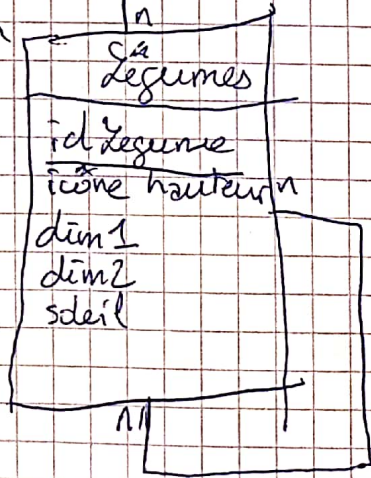 n
Légumes
id Légume
icône hauteur n
dim1
dim2
soleil
n